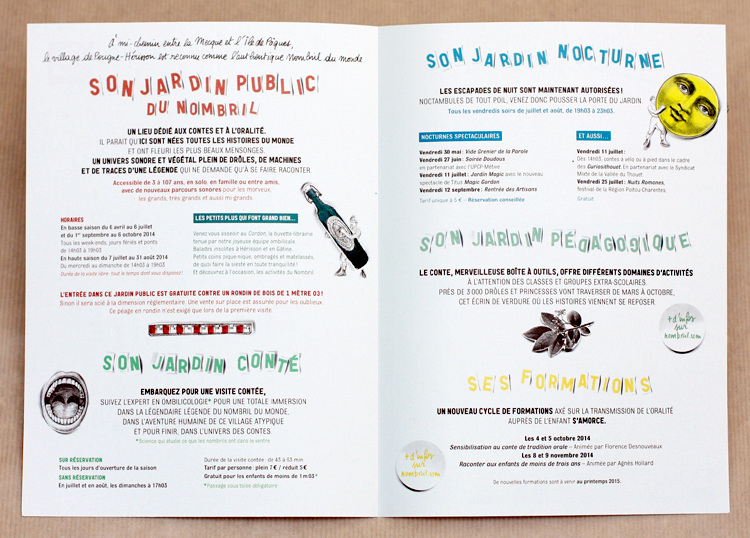 À mi-chemin entre la Mecque et l'Île de Pâques,
le village de Pougne-Hérisson est reconnu comme l'authentique Nombril du monde
SON JARDIN PUBLIC
DU NOMBRIL
UN LIEU DÉDIÉ AUX CONTES ET À L'ORALITÉ.
IL PARAIT QU'ICI SONT NÉES TOUTES LES HISTOIRES DU MONDE
ET ONT FLEURI LES PLUS BEAUX MENSONGES.
UN UNIVERS SONORE ET VÉGÉTAL PLEIN DE DRÔLES, DE MACHINES
ET DE TRACES D'UNE LÉGENDE QUI NE DEMANDE QU'À SE FAIRE RACONTER.
Accessible de 3 à 107 ans, en solo, en famille ou entre amis,
avec de nouveaux parcours sonores pour les morveux,
les grands, très grands et aussi mi-grands
HORAIRES
En basse saison du 6 avril au 6 juillet
et du 1er septembre au 6 octobre 2014
Tous les week-ends, jours fériés et ponts
de 14h03 à 19h03
En haute saison du 7 juillet au 31 août 2014
Du mercredi au dimanche de 14h03 à 19h03
Durée de la visite libre: tout le temps dont vous disposez!
LES PETITS PLUS QUI FONT GRAND BIEN...
Venez vous asseoir au Cordon, la buvette-librairie
tenue par notre joyeuse équipe ombilicale.
Balades insolites à Hérisson et en Gâtine.
Petits coins pique-nique, ombragés et matelassés,
de quoi faire la sieste en toute tranquillité!
Et découvrez à l'occasion, les activités du Nombril.
L'ENTRÉE DANS CE JARDIN PUBLIC EST GRATUITE CONTRE UN RONDIN DE BOIS DE 1 MÈTRE 03!
Sinon il sera scié à la dimension réglementaire. Une vente sur place est assurée pour les oublieux.
Ce péage en rondin n'est exigé que lors de la première visite.
SON JARDIN CONTÉ
EMBARQUEZ POUR UNE VISITE CONTÉE,
SUIVEZ L'EXPERT EN OMBILICOLOGIE* POUR UNE TOTALE IMMERSION
DANS LA LÉGENDAIRE LÉGENDE DU NOMBRIL DU MONDE,
DANS L'AVENTURE HUMAINE DE CE VILLAGE ATYPIQUE
ET POUR FINIR, DANS L'UNIVERS DES CONTES.
*Science qui étudie ce que les nombrils ont dans le ventre
SUR RÉSERVATION
Tous les jours d'ouverture de la saison
SANS RÉSERVATION
En juillet et en août, les dimanches à 17h03
Durée de la visite contée : de 43 à 63 min
Tarif par personne : plein 7€ / réduit 5€
Gratuit pour les enfants de moins de 1m03*
*Passage sous toise obligatoire
SON JARDIN NOCTURNE
LES ESCAPADES DE NUIT SONT MAINTENANT AUTORISÉES!
NOCTAMBULES DE TOUT POIL, VENEZ DONC POUSSER LA PORTE DU JARDIN.
Tous les vendredis soirs de juillet et août, de 19h03 à 23h03.
NOCTURNES SPECTACULAIRES
Vendredi 30 mai : Vide Grenier de la Parole
Vendredi 27 juin : Soirée Doudous
en partenariat avec l'UPCP-Métive
Vendredi 11 juillet : Jardin Magic avec le nouveau
spectacle de Titus Magic Gordon
Vendredi 12 septembre : Rentrée des Artisans
Tarif unique à 5€ - Réservation conseillée
ET AUSSI...
Vendredi 11 juillet :
Dès 14h03, contes à vélo ou à pied dans le cadre
des Curiosithouet. En partenariat avec le Syndicat
Mixte de la Vallée du Thouet
Vendredi 25 juillet : Nuits Romanes,
festival de la Région Poitou-Charentes
Gratuit
SON JARDIN PÉDAGOGIQUE
LE CONTE, MERVEILLEUSE BOÎTE À OUTILS, OFFRE DIFFÉRENTS DOMAINES D'ACTIVITÉS
À L'ATTENTION DES CLASSES ET GROUPES EXTRA-SCOLAIRES.
PRÈS DE 3000 DRÔLES ET PRINCESSES VONT TRAVERSER DE MARS À OCTOBRE,
CET ÉCRIN DE VERDURE OÙ LES HISTOIRES VIENNENT SE REPOSER.
+ d'infos
sur
nombril.com
SES FORMATIONS
UN NOUVEAU CYCLE DE FORMATIONS AXÉ SUR LA TRANSMISSION DE L'ORALITÉ
AUPRÈS DE L'ENFANT S'AMORCE.
Les 4 et 5 octobre 2014
Sensibilisation au conte de tradition orale - Animée par Florence Desnouveaux
Les 8 et 9 novembre 2014
Raconter aux enfants de moins de trois ans - Animée par Agnès Hollard
+ d'infos
sur
nombril.com
De nouvelles formations sont à venir au printemps 2015.